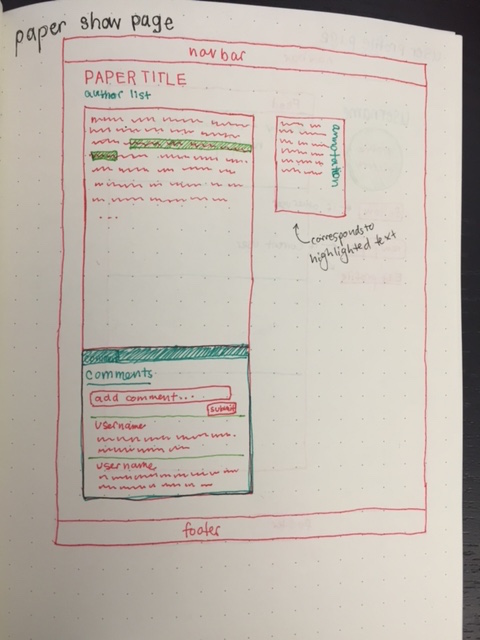 paper show page
navbar
PAPER TITLE
author list
annotation
...
corresponds to
highlighted text
comments
add comment...
submit
username
username
footer